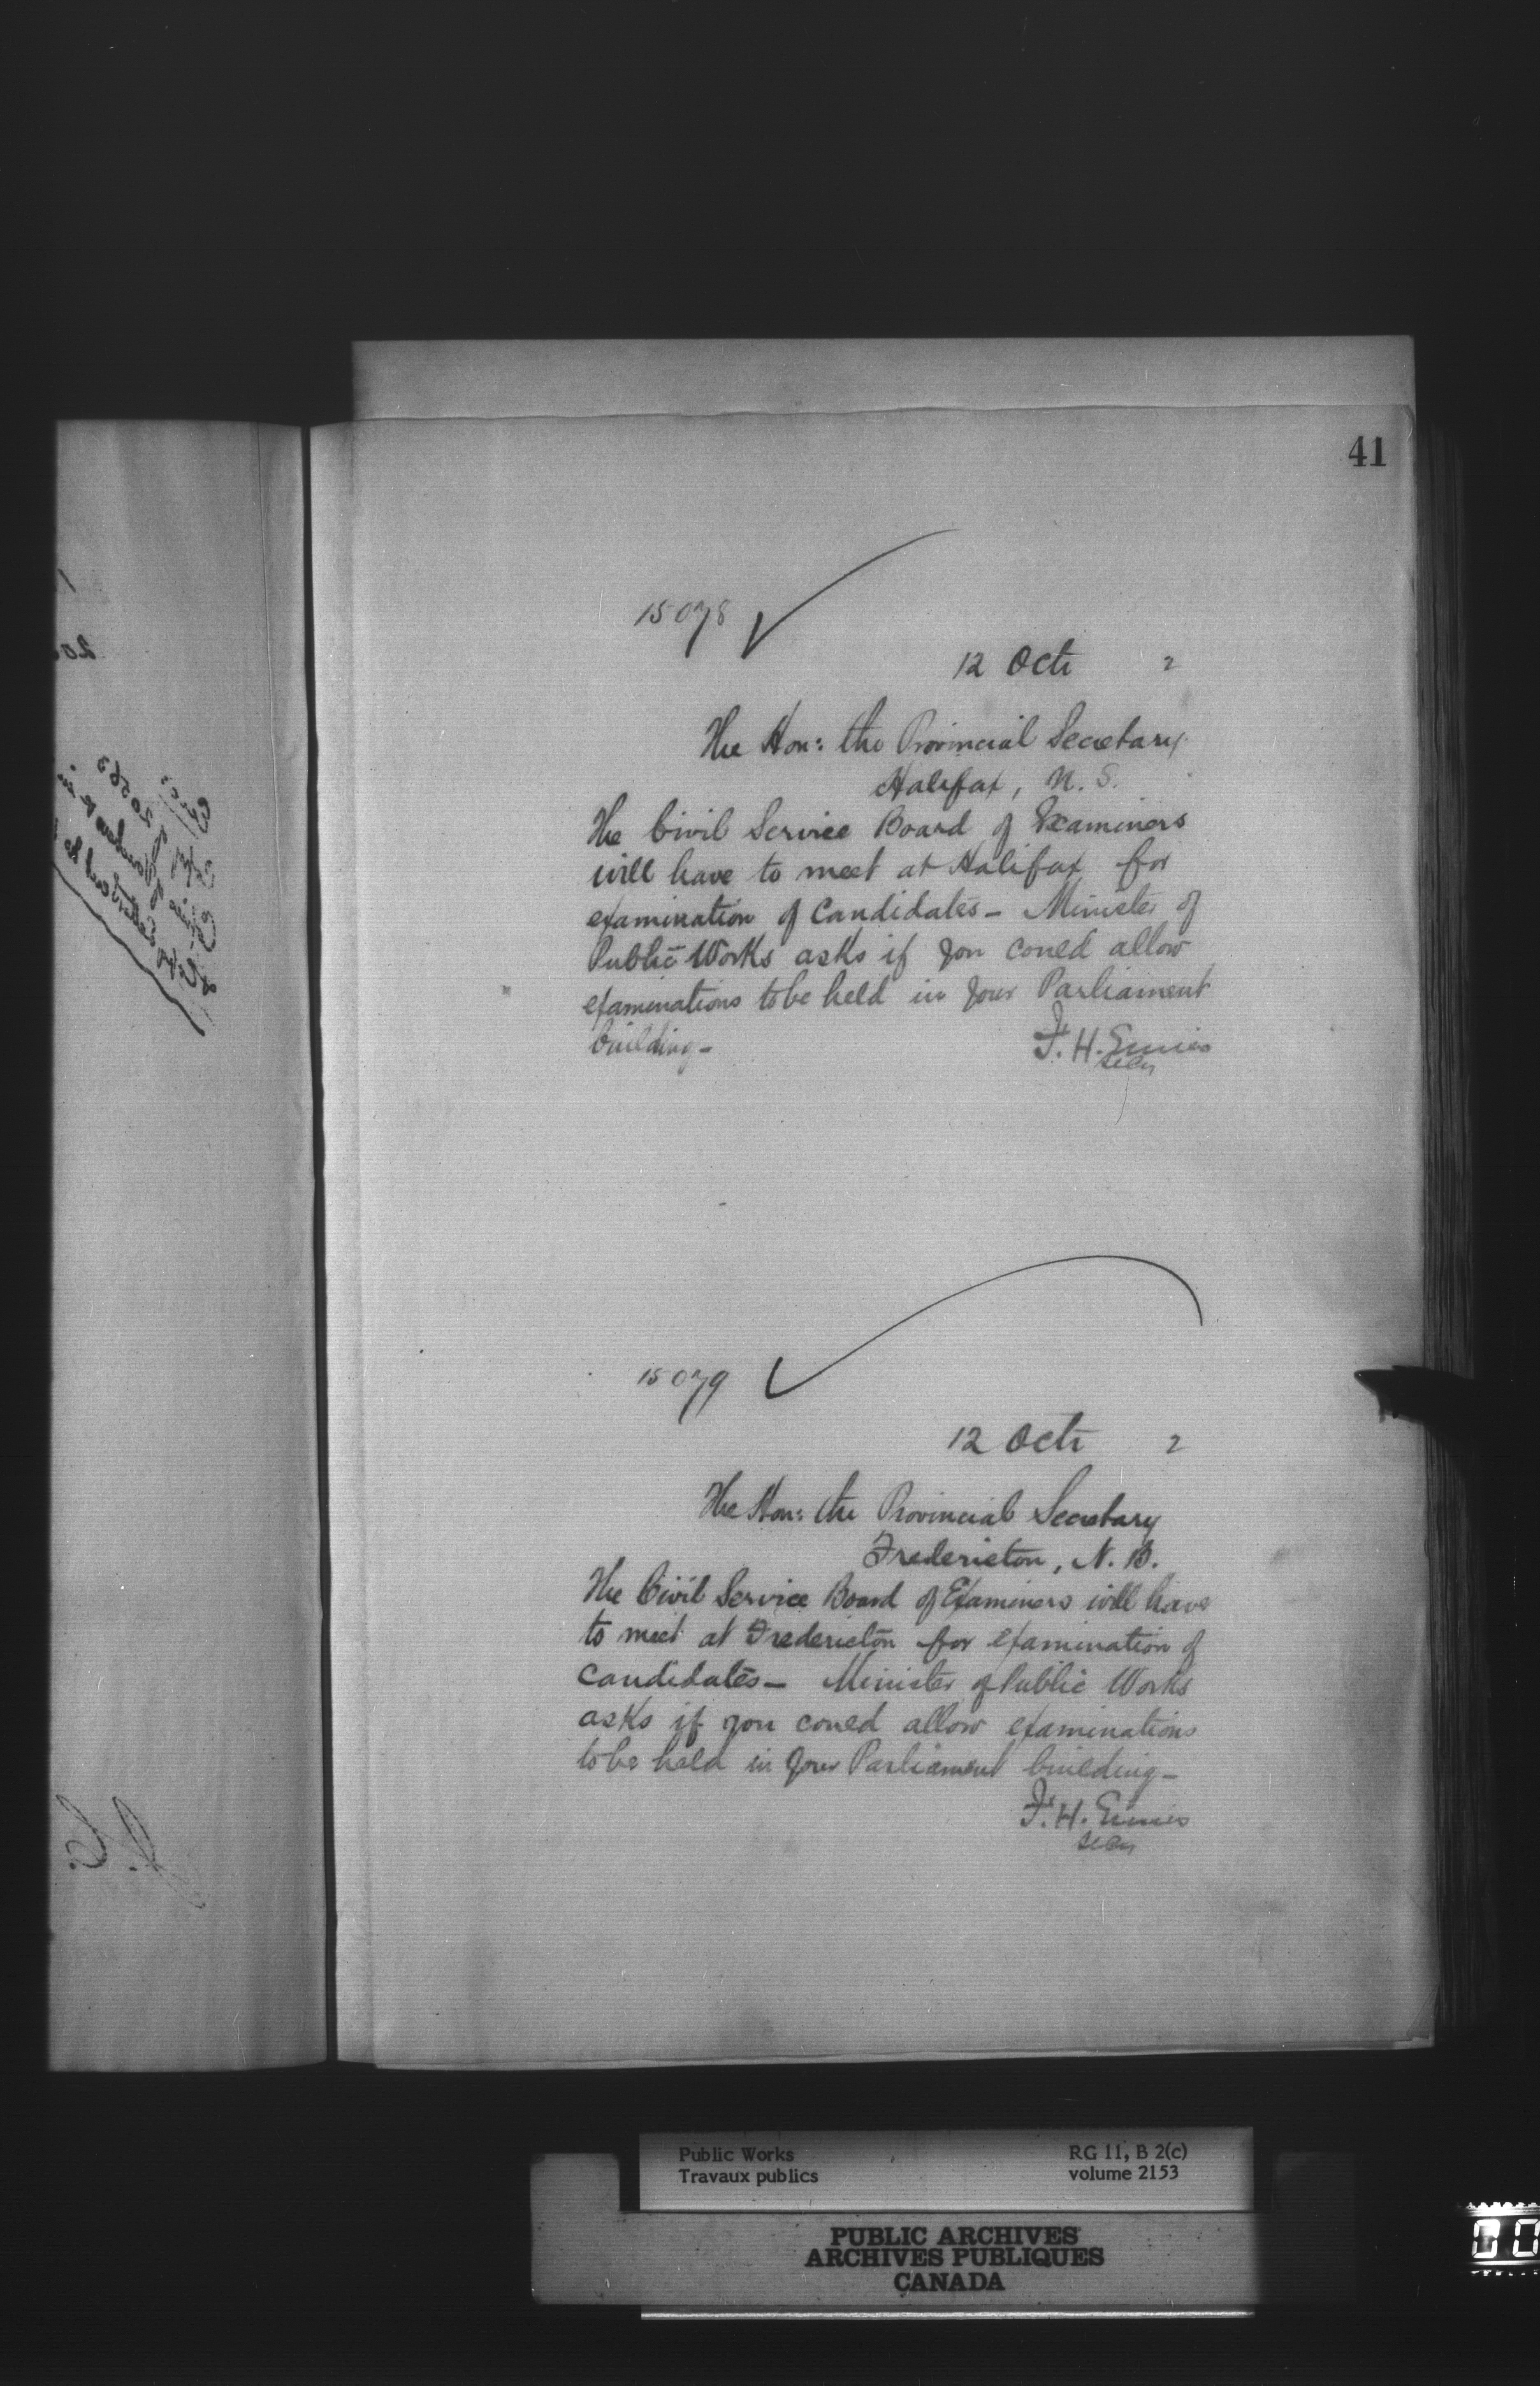 41
15078
12 Octr 2
The Hon: the Provincial Secretary
Halifax, N. S.
The Civil Service Board of Examiners
will have to meet at Halifax for
examination of Candidates - Minister of
Public Works asks if you could allow
examinations to be held in your Parliament
building -
F. H. Ennis
Secy
15079
12 Octr 2
The Hon: the Provincial Secretary
Fredericton, N. B.
The Civil Service Board of Examiners will have
to meet at Fredericton for examination of
Candidates - Minister of Public Works
asks if you could allow examinations
to be held in your Parliament building -
F. H. Ennis
Secy
Public Works
Travaux publics
RG 11, B 2(c)
volume 2153
PUBLIC ARCHIVES
ARCHIVES PUBLIQUES
CANADA